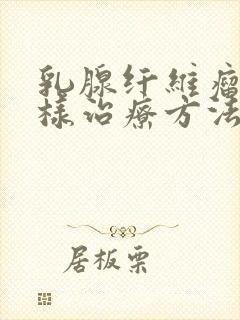 乳腺纤维瘤
样治疗方法
居板栗